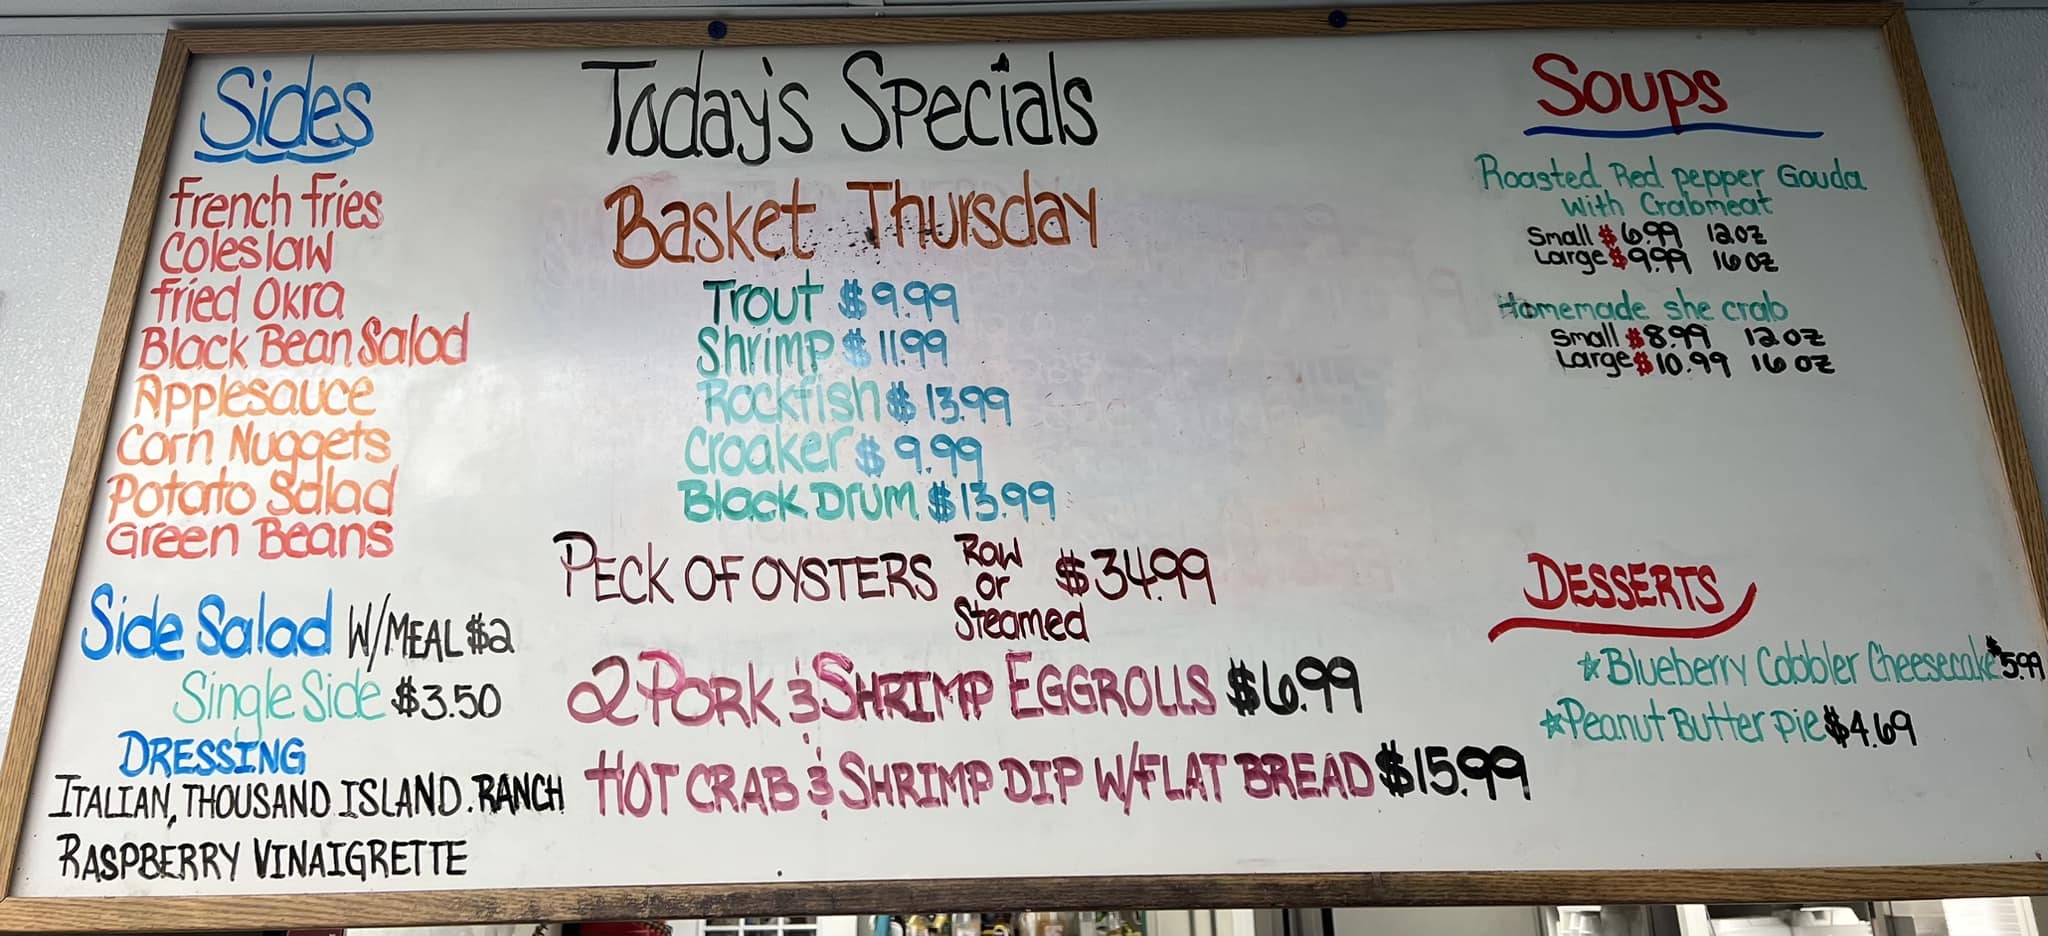 Sides
French Fries
Coleslaw
Fried Okra
Black Bean Salad
Applesauce
Corn Nuggets
Potato Salad
Green Beans
Side Salad W/MEAL $2
Single Side $3.50
DRESSING
ITALIAN, THOUSAND ISLAND. RANCH
RASPBERRY VINAIGRETTE
Today's Specials
Basket Thursday
Trout $9.99
Shrimp $11.99
Rockfish $13.99
Croaker $9.99
Black DRUM $13.99
PECK OF OYSTERS Raw or Steamed $34.99
2 PORK & SHRIMP EGGROLLS $6.99
HOT CRAB & SHRIMP DIP W/FLAT BREAD $15.99
Soups
Roasted Red pepper Gouda
with Crabmeat
Small $6.99 12oz
Large $9.99 16oz
Homemade she crab
Small $8.99 12oz
Large $10.99 16oz
DESSERTS
☆Blueberry Cobbler Cheesecake $5.99
☆Peanut Butter Pie $4.69